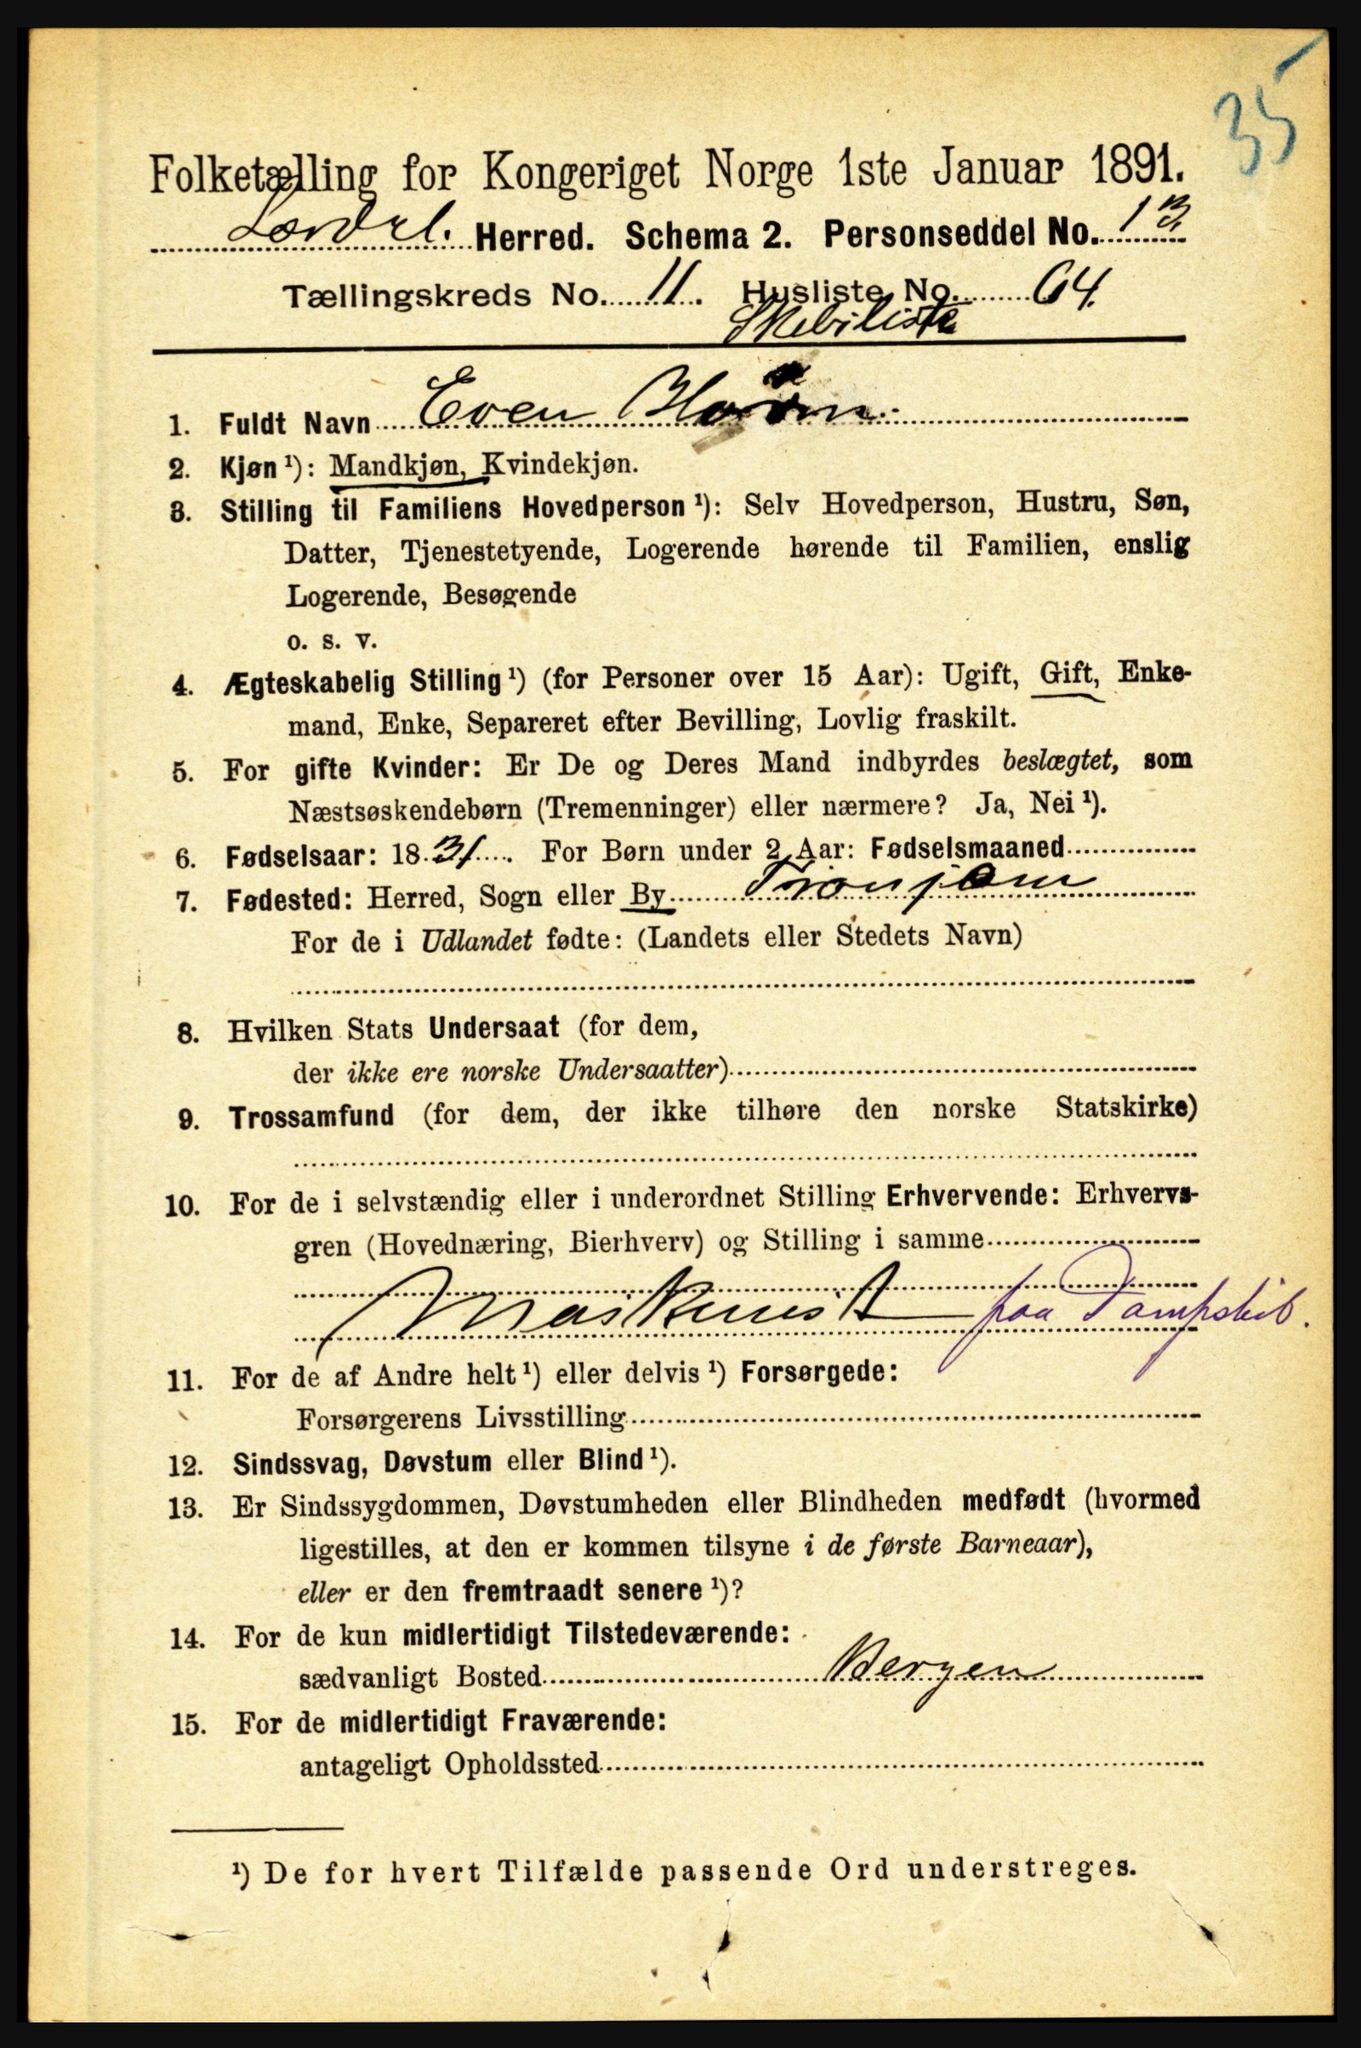 35
Folketælling for Kongeriget Norge 1ste Januar 1891.
Lærdal. Herred. Schema 2. Personseddel No. 13.
Tællingskreds No. 11. Husliste No. 64.
Skibsliste
1. Fuldt Navn Even
2. Kjøn ¹): Mandkjøn, Kvindekjøn.
3. Stilling til Familiens Hovedperson ¹): Selv Hovedperson, Hustru, Søn,
Datter, Tjenestetyende, Logerende hørende til Familien, enslig
Logerende, Besøgende
o. s. v.
4. Ægteskabelig Stilling ¹) (for Personer over 15 Aar): Ugift, Gift, Enke-
mand, Enke, Separeret efter Bevilling, Lovlig fraskilt.
5. For gifte Kvinder: Er De og Deres Mand indbyrdes beslægtet, som
Næstsøskendebørn (Tremenninger) eller nærmere? Ja, Nei ¹).
6. Fødselsaar: 1831. For Børn under 2 Aar: Fødselsmaaned
7. Fødested: Herred, Sogn eller By Tronjem
For de i Udlandet fødte: (Landets eller Stedets Navn)
8. Hvilken Stats Undersaat (for dem,
der ikke ere norske Undersaatter)
9. Trossamfund (for dem, der ikke tilhøre den norske Statskirke)
10. For de i selvstændig eller i underordnet Stilling Erhvervende: Erhvervs-
gren (Hovednæring, Bierhverv) og Stilling i samme
Maskinist paa Dampskib.
11. For de af Andre helt ¹) eller delvis ¹) Forsørgede:
Forsørgerens Livsstilling
12. Sindssvag, Døvstum eller Blind ¹).
13. Er Sindssygdommen, Døvstumheden eller Blindheden medfødt (hvormed
ligestilles, at den er kommen tilsyne i de første Barneaar),
eller er den fremtraadt senere ¹)?
14. For de kun midlertidigt Tilstedeværende:
sædvanligt Bosted Bergen
15. For de midlertidigt Fraværende:
antageligt Opholdssted
¹) De for hvert Tilfælde passende Ord understreges.